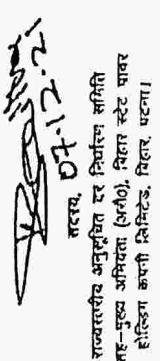 07.12.21
सदस्य,
राज्यस्तरीय अनुसूचित दर निर्धारण समिति
सह-मुख्य अभियंता (असै०), बिहार स्टेट पावर
होल्डिंग कंपनी लिमिटेड, बिहार, पटना।